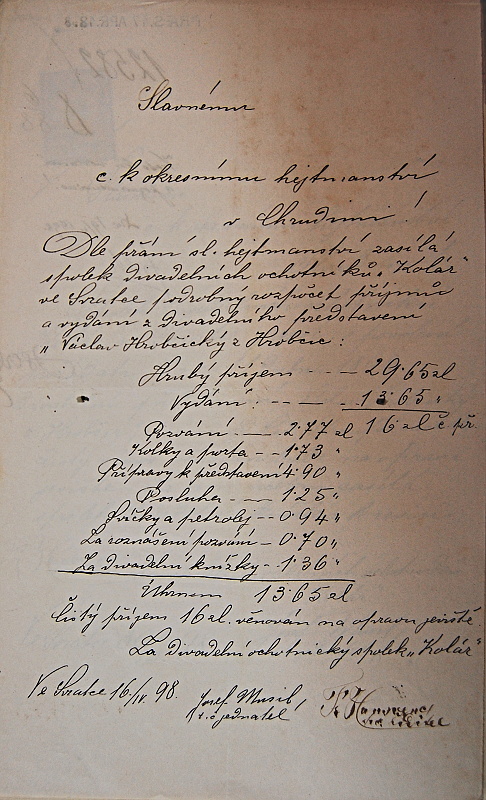 Slavnému
c. k okresnímu hejtmanství
v Chrudimi!
Dle přání sl. hejtmanství zasílá
spolek divadelních ochotníků „Kolár“
ve Svratce podrobný rozpočet příjmů
a vydání z divadelního představení
„Václav Hrobčický z Hrobčic:
Hrubý příjem - - - 29·65 zl
Vydání: - - - 13·65 "
Pozvání - - 2·77 zl 16 zl č. př.
Kolky a porta - - 1·73 "
Přípravy k představení 4·90 "
Posluha - - - 1·25 "
Svíčky a petrolej - - 0·94 "
Za roznášení pozvání - 0·70 "
Za divadelní knížky - 1·36 "
Úhrnem 13·65 zl
čistý příjem 16 zl. věnován na opravu jeviště.
Za divadelní ochotnický spolek „Kolár“
Ve Svratce 16/IV. 98.
Josef Musil,
t. č. jednatel